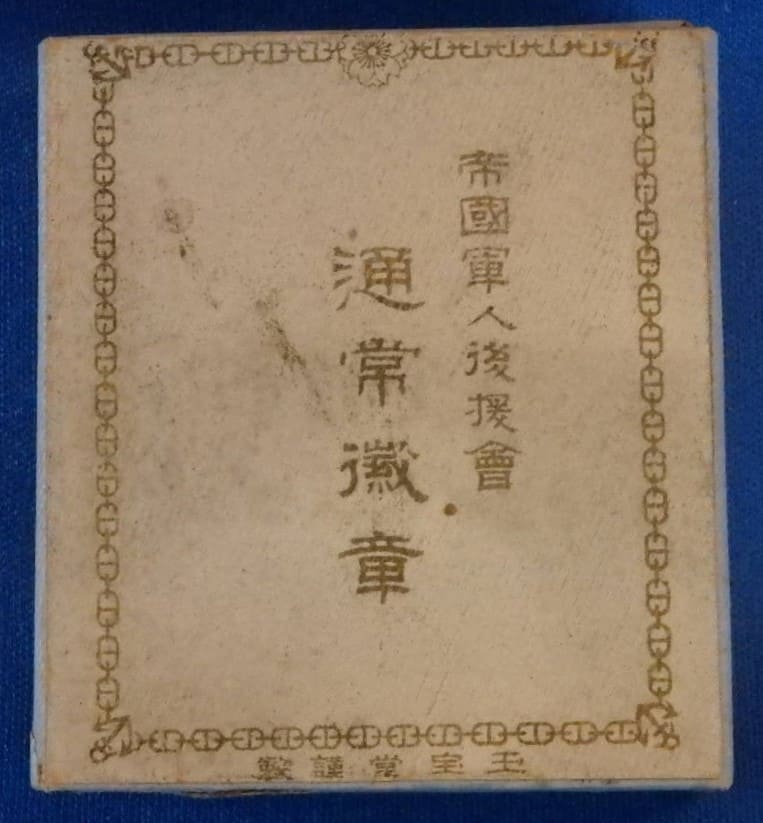 帝國軍人後援會
通常徽章
玉宝堂謹製